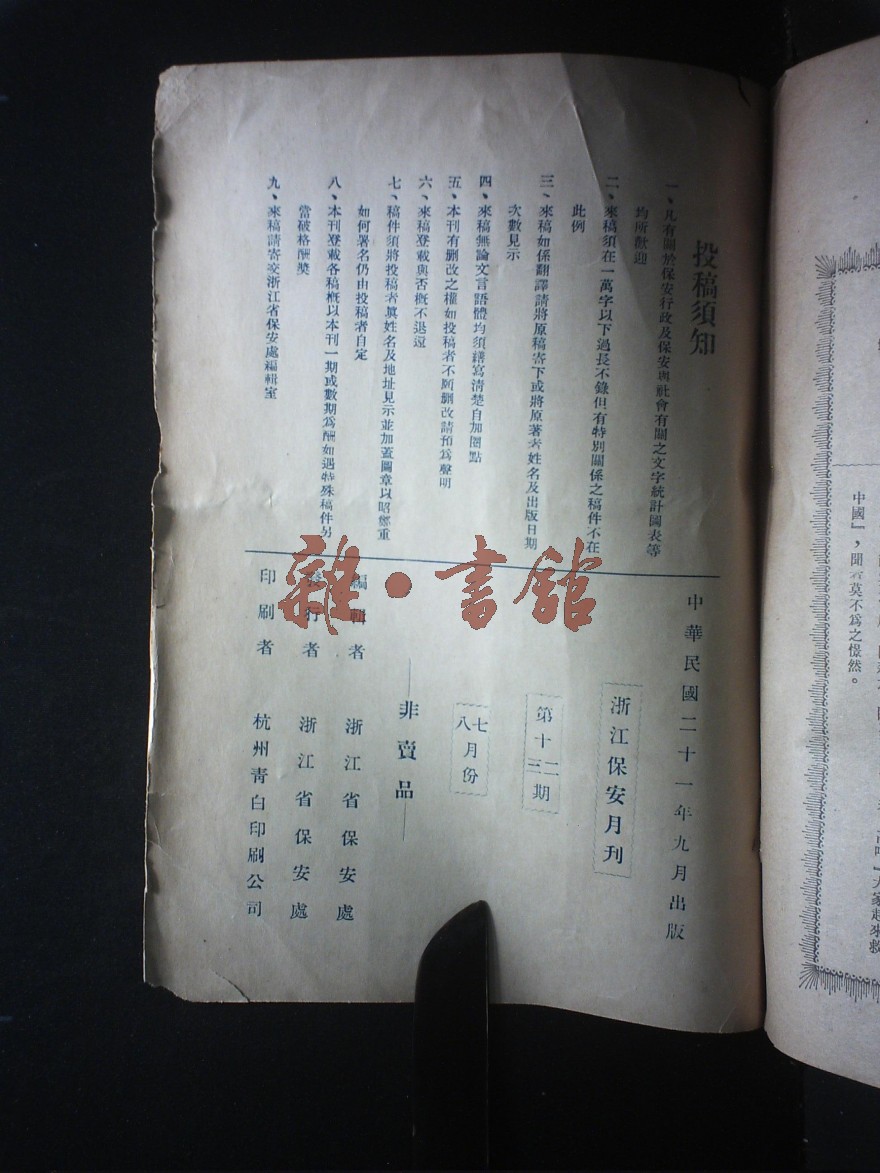 投稿須知
一、凡有關於保安行政及保安與社會有關之文字統計圖表等
均所歡迎
二、來稿須在一萬字以下過長不錄但有特別關係之稿件不在
此例
三、來稿如係翻譯請將原稿寄下或將原著者姓名及出版日期
次數見示
四、來稿無論文言語體均須繕寫清楚自加圈點
五、本刊有刪改之權如投稿者不願刪改請預爲聲明
六、來稿登載與否槪不退還
七、稿件須將投稿者眞姓名及地址見示並加蓋圖章以昭鄭重
如何署名仍由投稿者自定
八、本刊登載各稿槪以本刊一期或數期爲酬如遇特殊稿件另
當破格酬獎
九、來稿請寄交浙江省保安處編輯室
中華民國二十一年九月出版
浙江保安月刊
第十二三期
七八月份
非賣品
編輯者 浙江省保安處
發行者 浙江省保安處
印刷者 杭州青白印刷公司
雜·書館
中國』，聞者莫不爲之憬然。
大家起來救